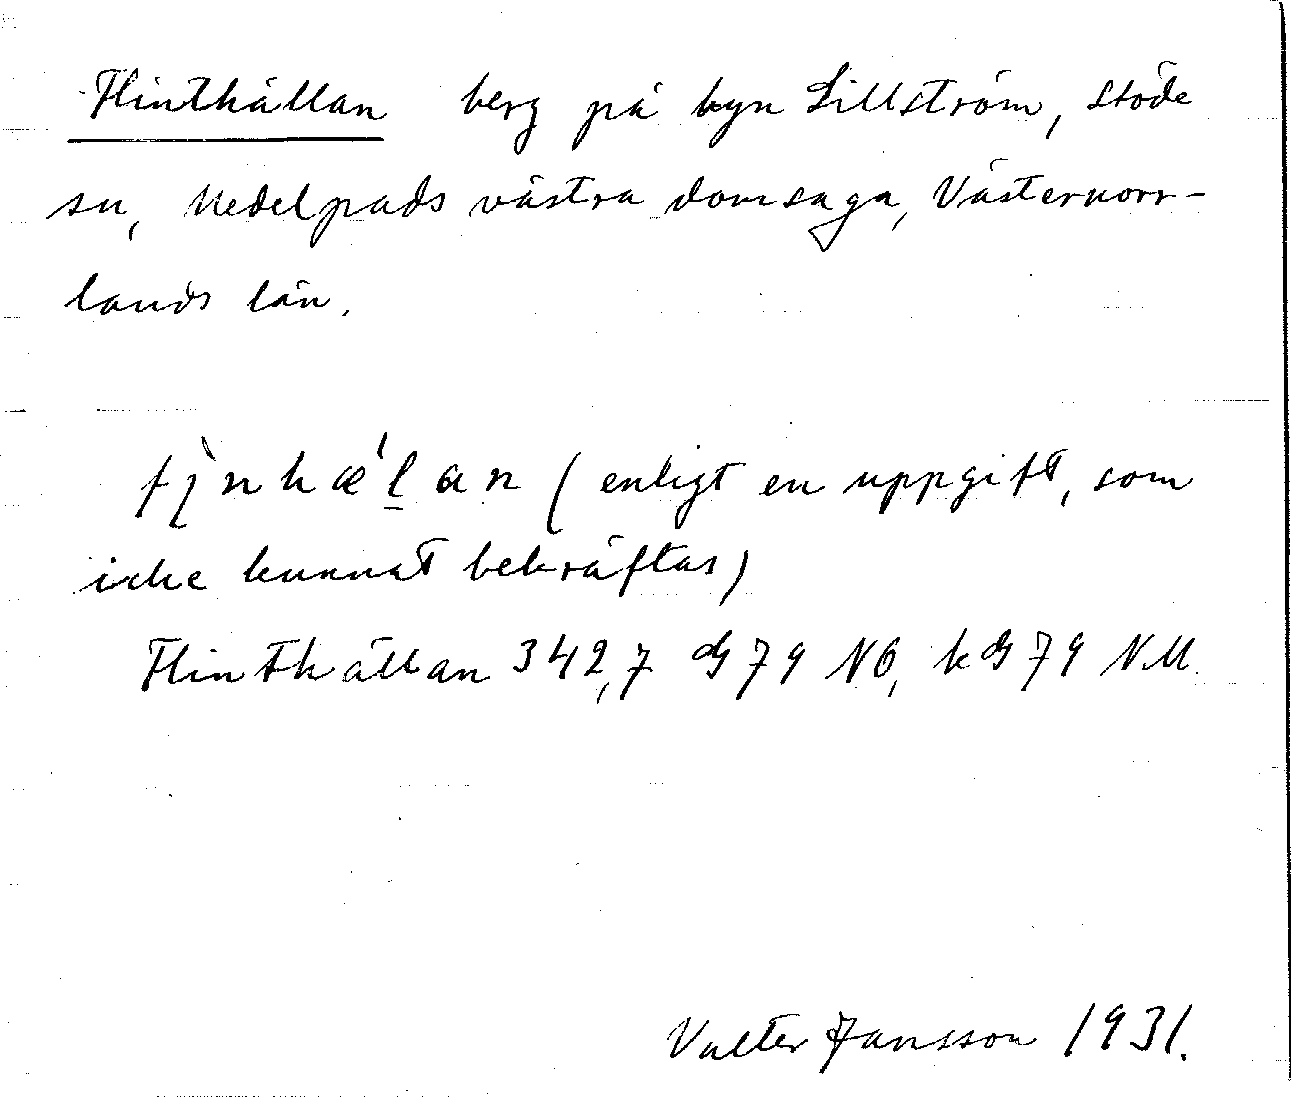 Flinthällan berg på byn Lillström, Stöde
sn, Medelpads västra domsaga, Västernorr-
lands län.
fj̀nhæ̀'l̲an (enligt en uppgift, som
icke kunnat bekräftas)
Flinthällan 342,7 dG 79 NÖ, kdG 79 NM
Valter Jansson 1931.